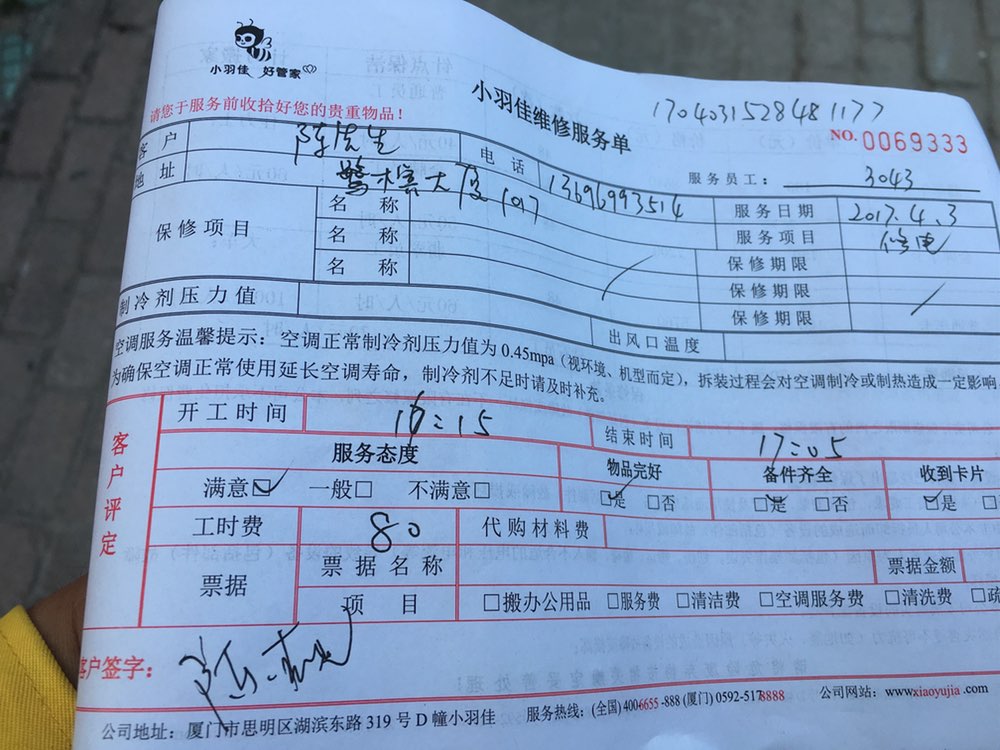 小羽佳 好管家
请您于服务前收拾好您的贵重物品！
小羽佳维修服务单
170403152848 1177
NO.0069333
服务员工： 3043
客户 陈先生 电话 13696993514
地址 鹭榕大厦1017
服务日期 2017.4.3
保修项目 名称 服务项目 修电
名称 保修期限
名称 保修期限
保修期限
制冷剂压力值 出风口温度
空调服务温馨提示：空调正常制冷剂压力值为0.45mpa（视环境、机型而定），拆装过程会对空调制冷或制热造成一定影响
为确保空调正常使用延长空调寿命，制冷剂不足时请及时补充。
客户评定
开工时间 16:15 结束时间 17:05
服务态度 物品完好 备件齐全 收到卡片
满意☑ 一般□ 不满意□ ☑是 □否 ☑是 □否 ☑是 □
工时费 80 代购材料费
票据 票据名称 票据金额
项目 □搬办公用品 □服务费 □清洁费 □空调服务费 □清洗费 □疏
客户签字：
公司地址：厦门市思明区湖滨东路319号D幢小羽佳 服务热线：(全国)4006655-888 (厦门) 0592-5178888 公司网站：www.xiaoyujia.com